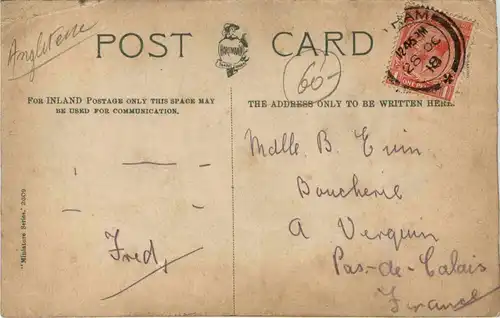 Angleterre
POST CARD
60-
AM
12.45 PM
26 OC
18
FOR INLAND POSTAGE ONLY THIS SPACE MAY
BE USED FOR COMMUNICATION.
THE ADDRESS ONLY TO BE WRITTEN HERE.
"Miniature Series."
Fred,
Mdlle. B.
Boucherie
A Verquin
Pas-de-Calais
France